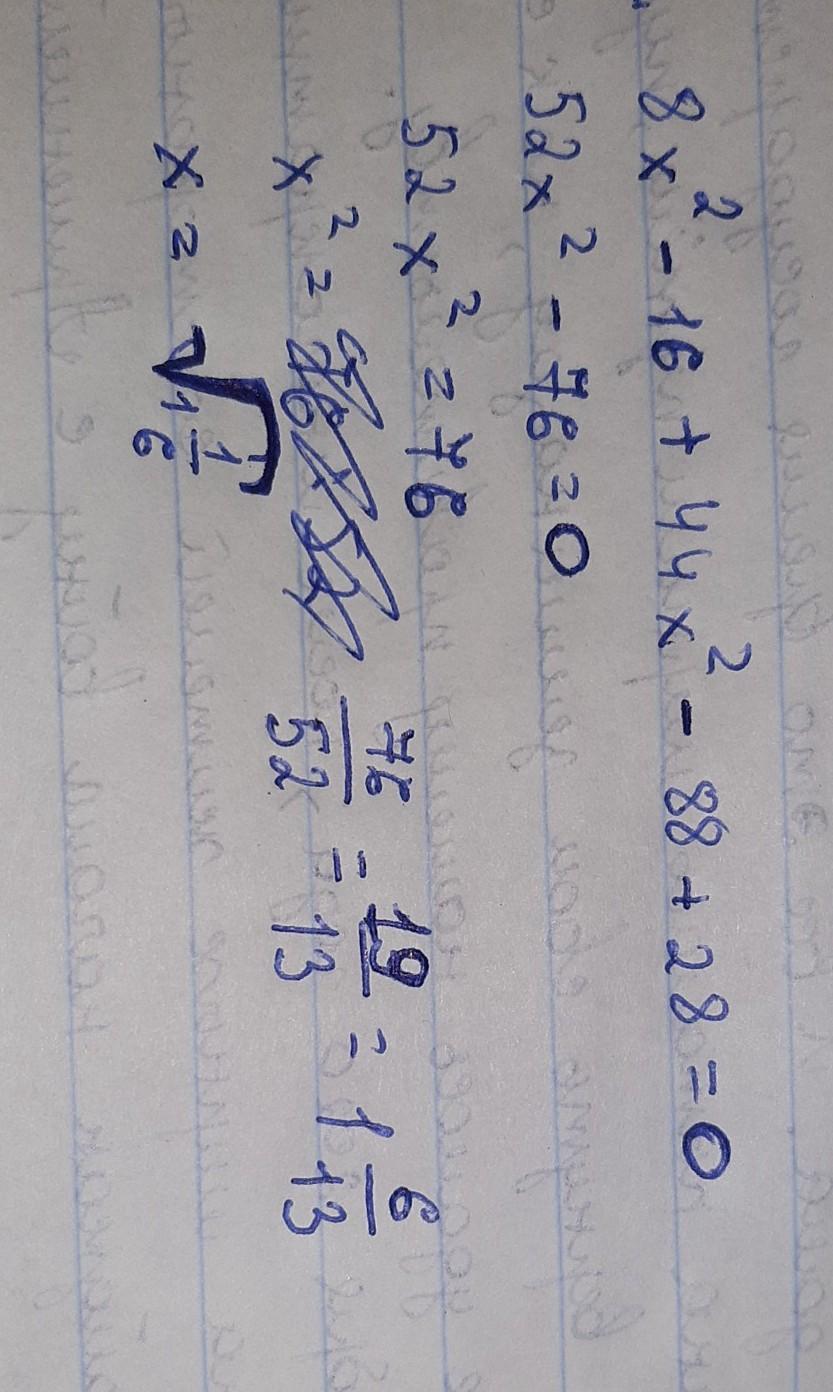 8x² - 16 + 44x² - 88 + 28 = 0
52x² - 76 = 0
52x² = 76
x² = 76/52 = 19/13 = 1 6/13
x = √1 1/6